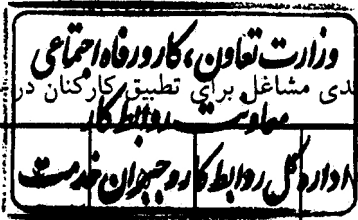 وزارت تعاون، کار و رفاه اجتماعی
دی مشاغل برای تطبیق کارکنان در
معاونت روابط کار
اداره کل روابط کار و جبران خدمت